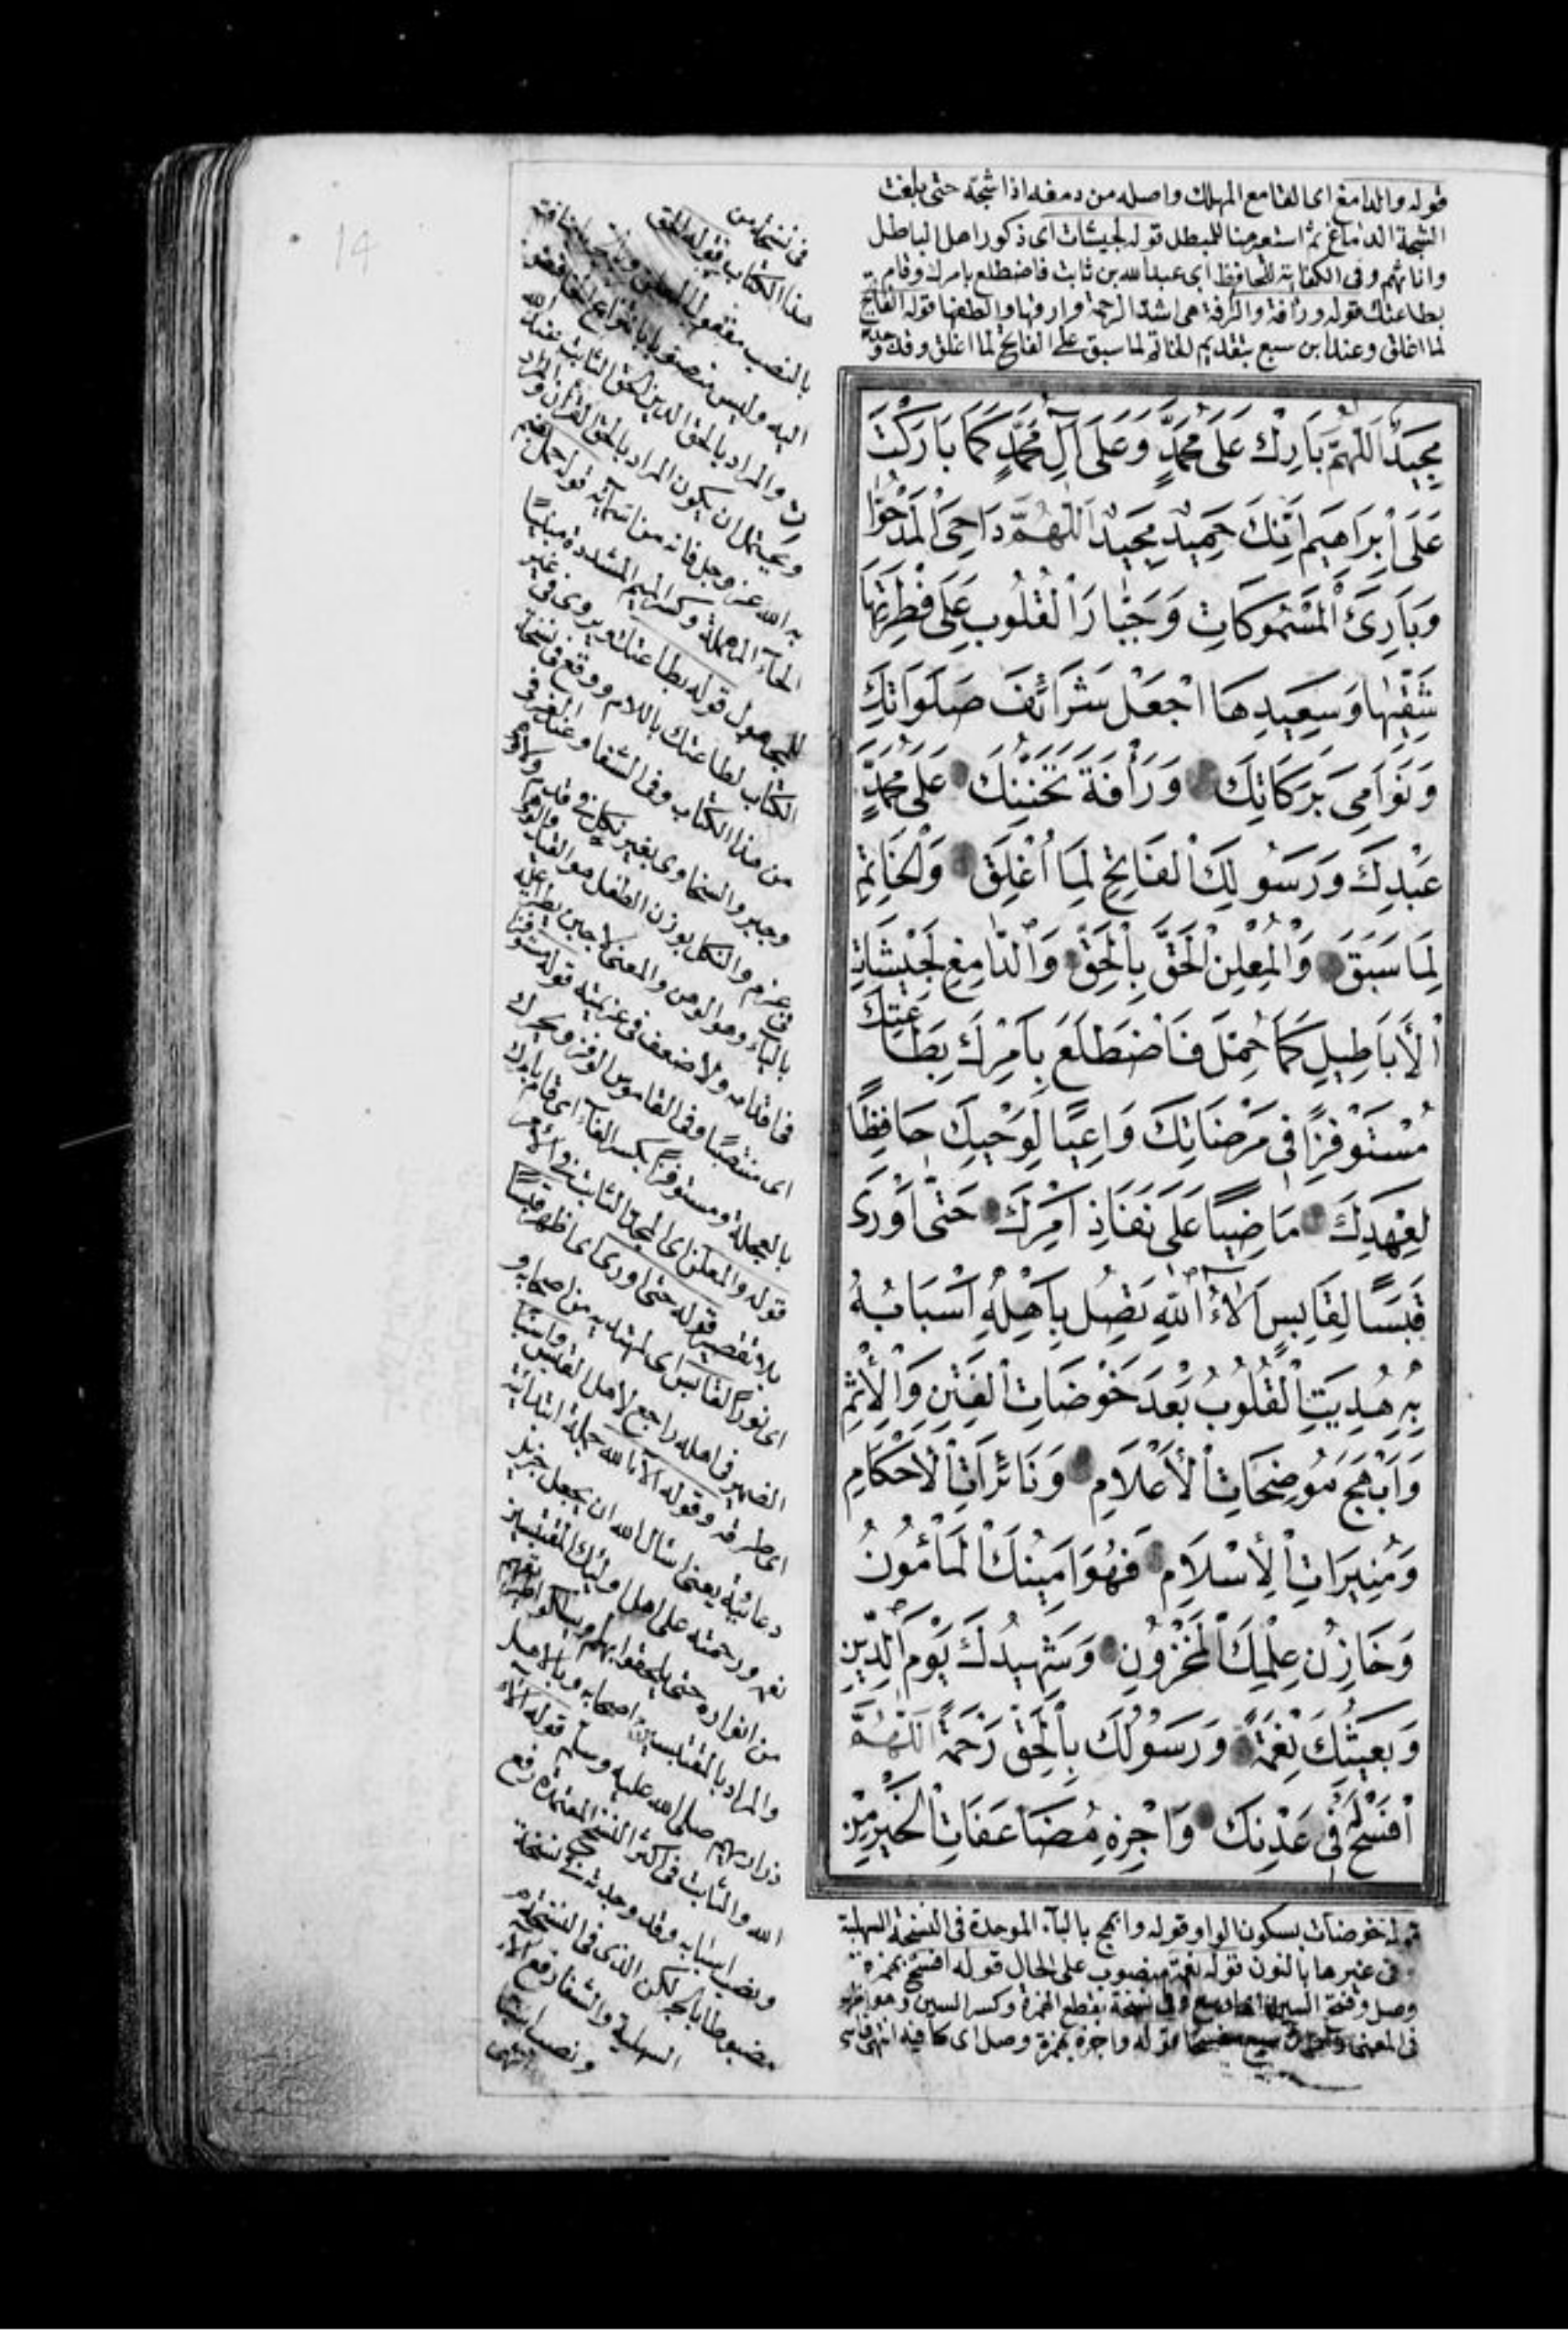 قوله والدامغ اى القامع المهلك واصله من دمغه اذا شجه حتى بلغت
الشجة الدماغ ثم استعير هنا للمبطل قوله لجيشات اى ذكور اهل الباطل
واناثهم وفى الكفاية للحافظ ابى عبد الله بن ثابت فاضطلع بامرك وقام
بطاعتك قوله ورأفة والرأفة هى اشد الرحمة وارقها والطفها قوله الفاتح
لما اغلق وعند ابن سبع بتقديم الخاتم لما سبق على الفاتح لما اغلق
مَجِيدٌ اَللّٰهُمَّ بَارِكْ عَلَى مُحَمَّدٍ وَعَلَى آلِ مُحَمَّدٍ كَمَا بَارَكْتَ
عَلَى اِبْرَاهِيمَ اِنَّكَ حَمِيدٌ مَجِيدٌ اَللّٰهُمَّ دَاحِىَ الْمَدْحُوَّا
وَبَارِئَ الْمَسْمُوكَاتِ وَجَبَّارَ الْقُلُوبِ عَلَى فِطْرَتِهَا
شَقِيِّهَا وَسَعِيدِهَا اجْعَلْ شَرَائِفَ صَلَوَاتِكَ
وَنَوَامِىَ بَرَكَاتِكَ وَرَأْفَةَ تَحَنُّنِكَ عَلَى مُحَمَّدٍ
عَبْدِكَ وَرَسُولِكَ الْفَاتِحِ لِمَا اُغْلِقَ وَالْخَاتِمِ
لِمَا سَبَقَ وَالْمُعْلِنِ الْحَقَّ بِالْحَقِّ وَالدَّامِغِ لِجَيْشَاتِ
الْاَبَاطِيلِ كَمَا حُمِّلَ فَاضْطَلَعَ بِاَمْرِكَ بِطَاعَتِكَ
مُسْتَوْفِزًا فِى مَرْضَاتِكَ وَاعِيًا لِوَحْيِكَ حَافِظًا
لِعَهْدِكَ مَاضِيًا عَلَى نَفَاذِ اَمْرِكَ حَتَّى اَوْرَى
قَبَسًا لِقَابِسٍ اٰلَاءُ اللّٰهِ تَصِلُ بِاَهْلِهِ اَسْبَابُهُ
بِهِ هُدِيَتِ الْقُلُوبُ بَعْدَ خَوْضَاتِ الْفِتَنِ وَالْاِثْمِ
وَاَبْهَجَ مُوضِحَاتِ الْاَعْلَامِ وَنَائِرَاتِ الْاَحْكَامِ
وَمُنِيرَاتِ الْاِسْلَامِ فَهُوَ اَمِينُكَ الْمَأْمُونُ
وَخَازِنُ عِلْمِكَ الْمَخْزُونِ وَشَهِيدُكَ يَوْمَ الدِّينِ
وَبَعِيثُكَ نِعْمَةً وَرَسُولُكَ بِالْحَقِّ رَحْمَةً اَللّٰهُمَّ
افْسَحْ لَهُ فِى عَدْنِكَ وَاجْزِهِ مُضَاعَفَاتِ الْخَيْرِ مِنْ
قوله خوضات بسكون الواو وقوله وابهج بالباء الموحدة فى النسخة السهلية
وفى غيرها بالنون قوله نعمة منصوب على الحال قوله افسح بهمزة
وصل وفتح السين وفى نسخة بقطع الهمزة وكسر السين وهو
فى المعنى قوله واجزه بهمزة وصل اى كافيه انتهى فاسى
فى نسخة من
هذا الكتاب قوله الحق
بالنصب مفعول المعلن
اليه وليس منصوبا بانتزاع الخافض
والمراد بالحق الدين الحق الثابت عند الله
ويحتمل ان يكون المراد بالحق القرآن والمراد
به الله عز وجل فانه من اسمائه قوله حمل بضم
الحاء المهملة وكسر الميم المشددة مبنيا
للمجهول قوله بطاعتك ويروى فى غير
الكتاب لطاعتك باللام ووقع فى نسخة
من هذا الكتاب وفى الشفا وعند
وجبر والسخاوى بغير نكل فى قدم
فى عزم والنكل بوزن الطفل هو القيد
بالياء وهو الوهن والمعنى لا جبن
فى اقدامه ولا ضعف فى عزيمته قوله مستوفزا
اى منتصبا وفى القاموس الوفز ويحرك
بالعجلة ومستوفزا بكسر الفاء اى قام بامرك
قوله والمعلن اى الحق الثابت فى الامر
بلا تقصير قوله حتى اورى اى اظهر قبسا
اى نورا لقابس اى لمهتد به من اصحابه و
الضمير فى اهله راجع لاهل القابس واسبابه
اى طرقه وقوله آلاء الله جملة ابتدائية
دعائية يعنى اسأل الله ان يجعل جزيل
نعمه ورحمته على اهل اولئك المقتبسين
من انواره حتى يلحقوا بهم
والمراد بالمقتبسين اصحابه وبالاهل
ذراريهم صلى الله عليه وسلم قوله آلاء
الله والثابت فى اكثر النسخ المعتمدة رفع
ونصب اسبابه وقد وجدته فى نسخة
مضبوطا بالجر لكن الذى فى النسخة
السهلية والشفا رفع آلاء
ونصب اسبابه
انتهى
14